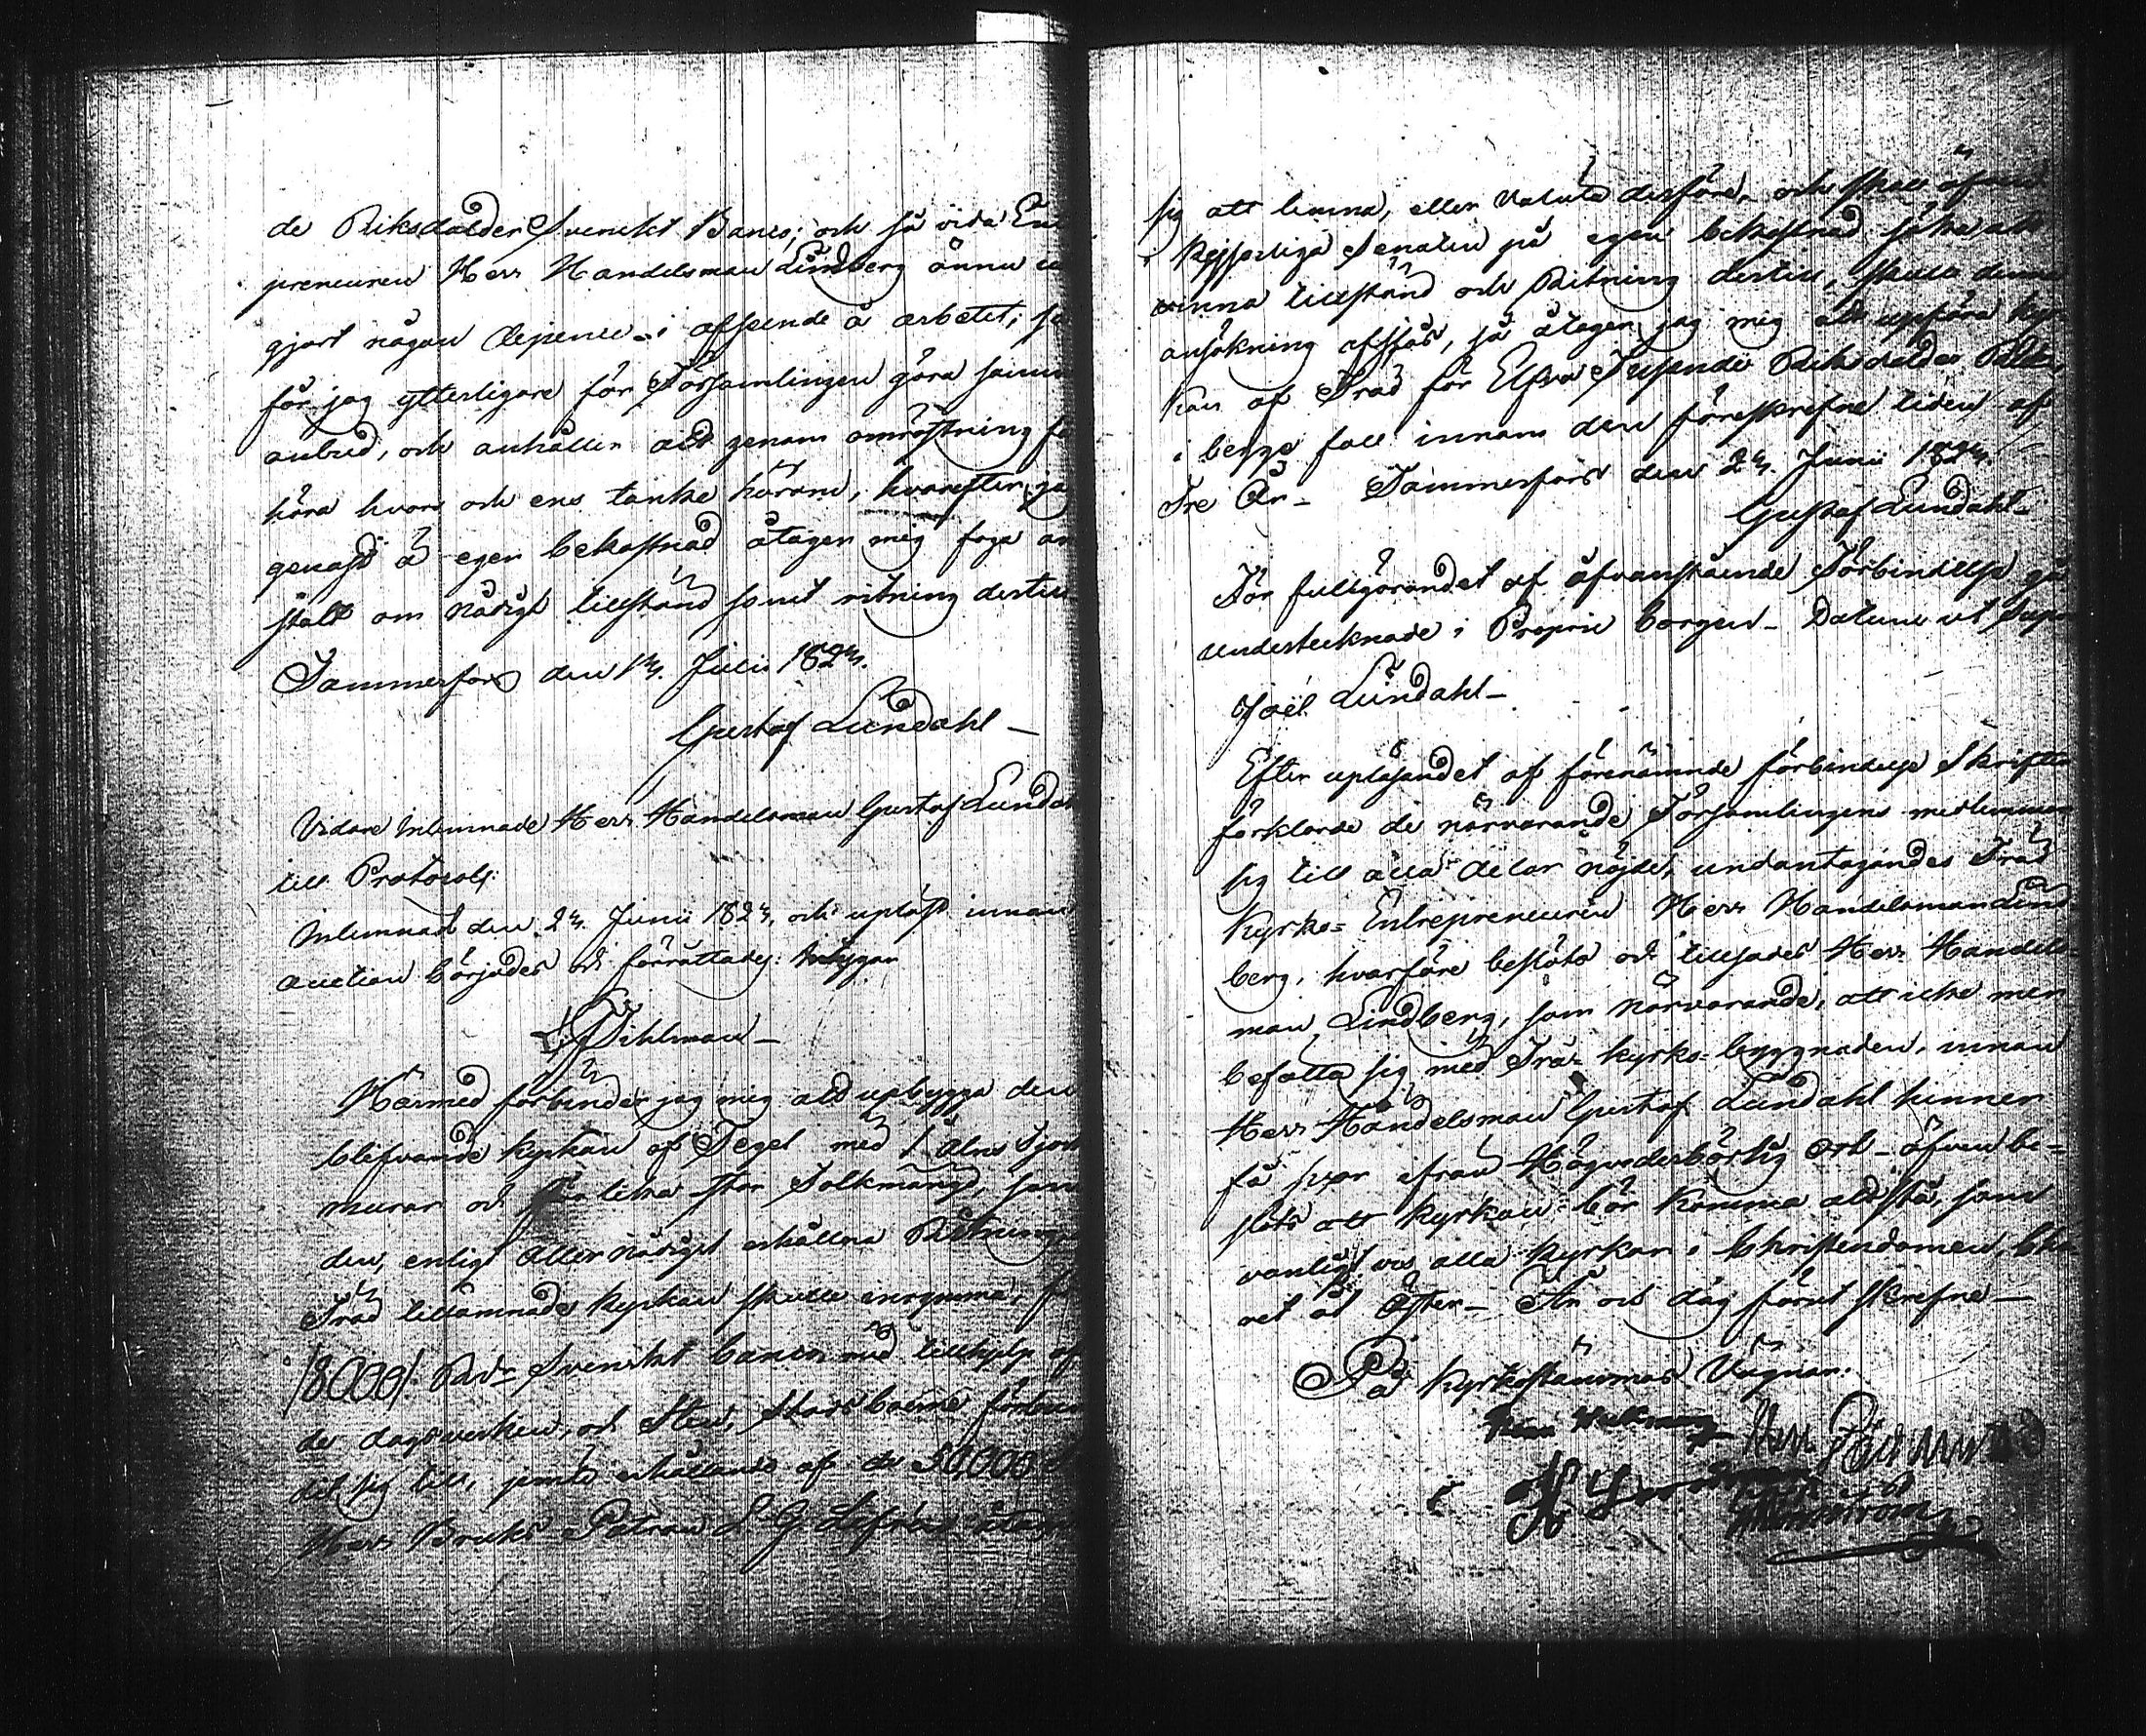 de Riksdalder Svenskt Banco; och så vida En
preneuren Herr Handelsman Lindberg ännu
gjort någon depence i afseende å arbetet; så
får jag ytterligare för Församlingen göra samma
anbud, och anhåller att genom omröstning få
höra hvars och ens tanke härom, hvarefter ja
genast å egen bekostnad åtager mig foga an
stalt om Nådigt tillstånd samt ritning dertill
Tammerfors den 1sta Julii
Gustaf Lundahl
Vidare Inlemnade Herr Handelsman Gustaf Lundah
till Protocoll:
Inlemnad den Junii och upläst innan
auction börjades och förrättades: Intygar
Pihlman
Härmed förbinder jag mig att upbygga den
blifvande kyrkan af Tegel med 1 alns tjock
murar och lika stor Folkmängd, som
den, enligt Allernådigst erhållna Ritning
Träd tillämnade kyrkan skulle inrymma, f
18000 Rdr Svenskt banco med tillhjelp af
de dagsverken, och Sten, förbun
dit sig till, jemte erhållande af de
Herr Bruks Patron L G Lefrén åtagit
sig att lemna, eller Valuta derföre, och skall äfven
Kejserliga Senaten på egen bekostnad söka att
vinna tillstånd och Ritning dertill, skulle denna
ansökning afslås, så åtager jag mig att upföra kyr
kan af Träd för Elfva Tusende Riksdaler
i begge fall innom den föreskrefne tiden af
Tre År. Tammerfors den Junii
Gustaf Lundahl
För fullgörandet af ofvanstående Förbindelse gå
undertecknade i Proprie borgen. Datum ut Supra
Joël Lundahl
Efter upläsandet af förenämnde förbindelse Skrifter
förklarade de närvarande Församlingens medlemmar
sig till alla delar nöjde, undantagandes Träd
Kyrko-Entreprenneuren Herr Handelsman Lind
berg, hvarföre beslöts och tillsades Herr Handels
man Lindberg, som närvarande, att icke mer
befatta sig med Trä-kyrko-byggnaden, innan
Herr Handelsman Gustaf Lundahl hinner
få svar ifrån Högvederbörlig Ort - äfven be-
slöts att kyrkan bör komma att stå, som
vanligt vis alla kyrkor i Christendomen, Cho
ret åt Öster. År och dag förut skrefne
På Kyrkostämmas Vägnar: